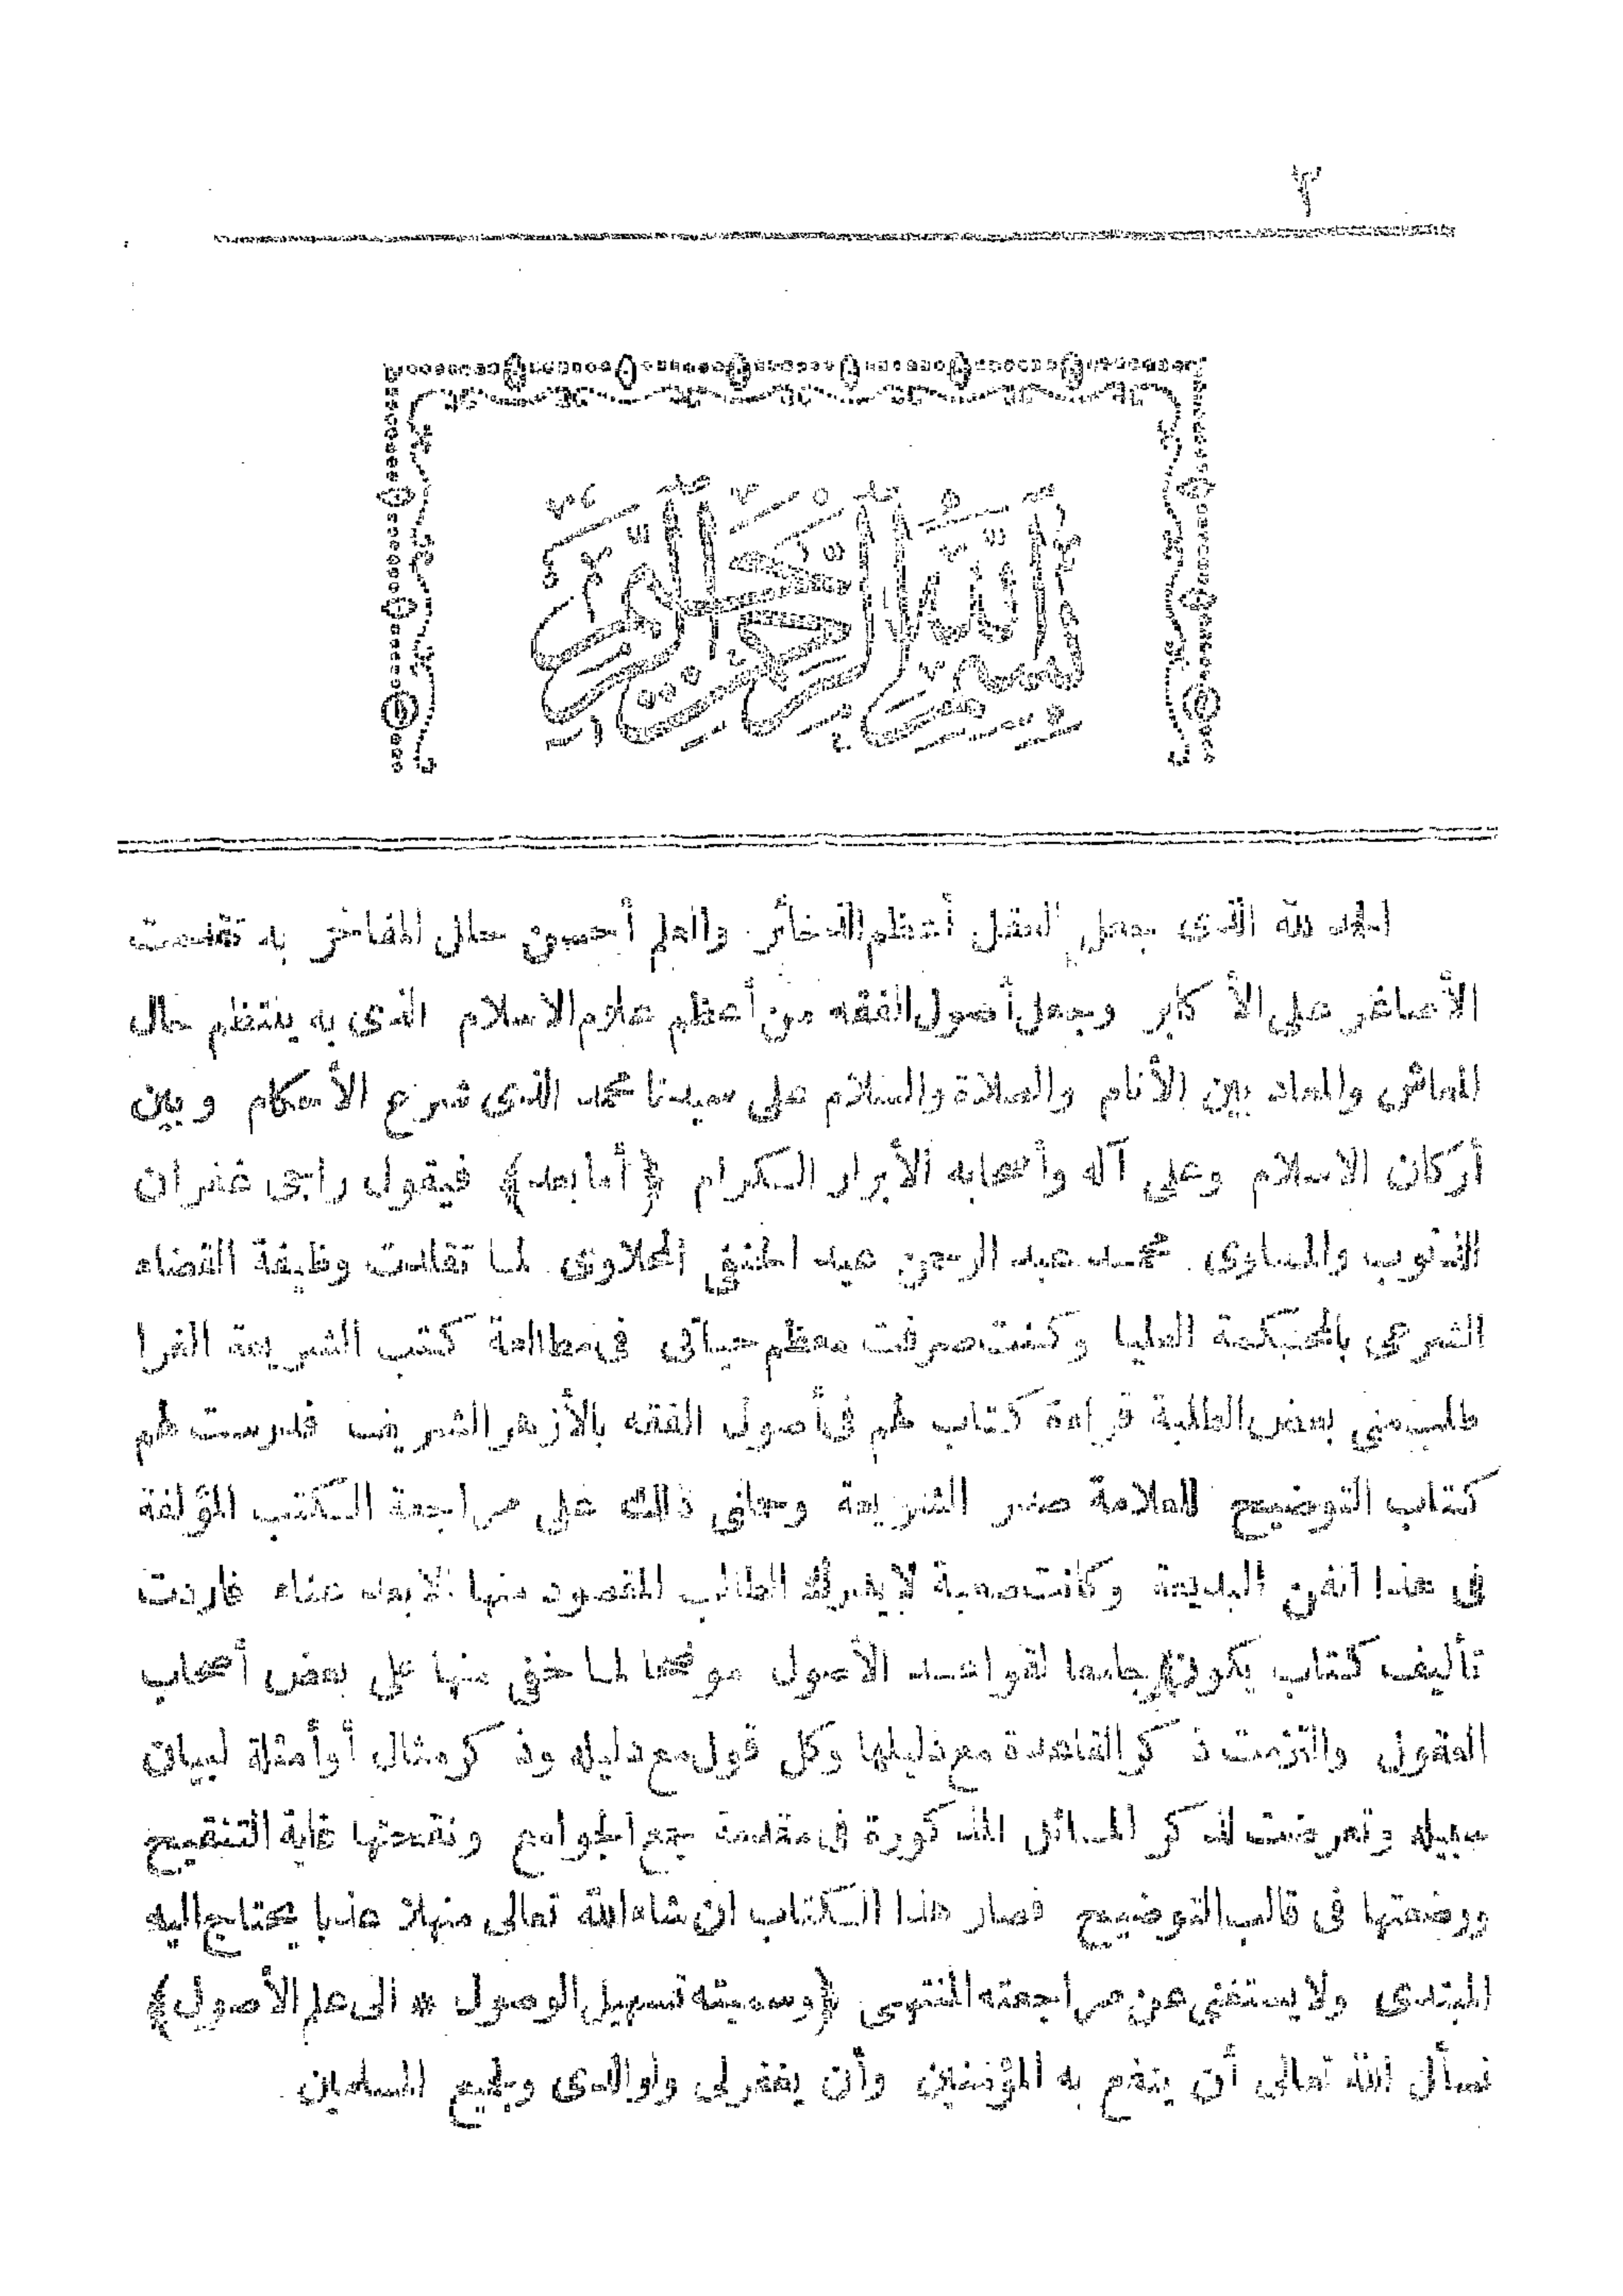 ٢
بسم الله الرحمن الرحيم
الحمد لله الذى جعل العقل أعظم الذخائر والعلم أحسن حلل المفاخر به تقدمت
الأصاغر على الأكابر وجعل أصول الفقه من أعظم علوم الاسلام الذى به ينتظم حال
المعاش والمعاد بين الأنام والصلاة والسلام على سيدنا محمد الذى شرع الأحكام وبين
أركان الاسلام وعلى آله وأصحابه الأبرار الكرام ﴿أما بعد﴾ فيقول راجى غفران
الذنوب والمساوى محمد عبد الرحمن عيد الحنفى المحلاوى لما تقلدت وظيفة القضاء
الشرعى بالمحكمة العليا وكنت صرفت معظم حياتى فى مطالعة كتب الشريعة الغرا
طلب منى بعض الطلبة قراءة كتاب لهم فى أصول الفقه بالأزهر الشريف فدرست لهم
كتاب التوضيح للعلامة صدر الشريعة وحملنى ذلك على مراجعة الكتب المؤلفة
فى هذا الفن البديعة وكانت صعبة لا يدرك الطالب المقصود منها الا بعد عناء فاردت
تأليف كتاب يكون جامعا لقواعد الأصول موضحا لما خفى منها على بعض أصحاب
العقول والتزمت ذكر القاعدة مع دليلها وكل قول مع دليله وذكر مثال أو أمثلة لبيان
سبيله وتعرضت لذكر المسائل المذكورة فى مقدمة جمع الجوامع ونقحتها غاية التنقيح
ووضعتها فى قالب التوضيح فصار هذا الكتاب ان شاء الله تعالى منهلا عذبا يحتاج اليه
المبتدى ولا يستغنى عن مراجعته المنتهى ﴿وسميته تسهيل الوصول * الى علم الأصول﴾
نسأل الله تعالى أن ينفع به المؤمنين وأن يغفر لى ولوالدى وجميع المسلمين